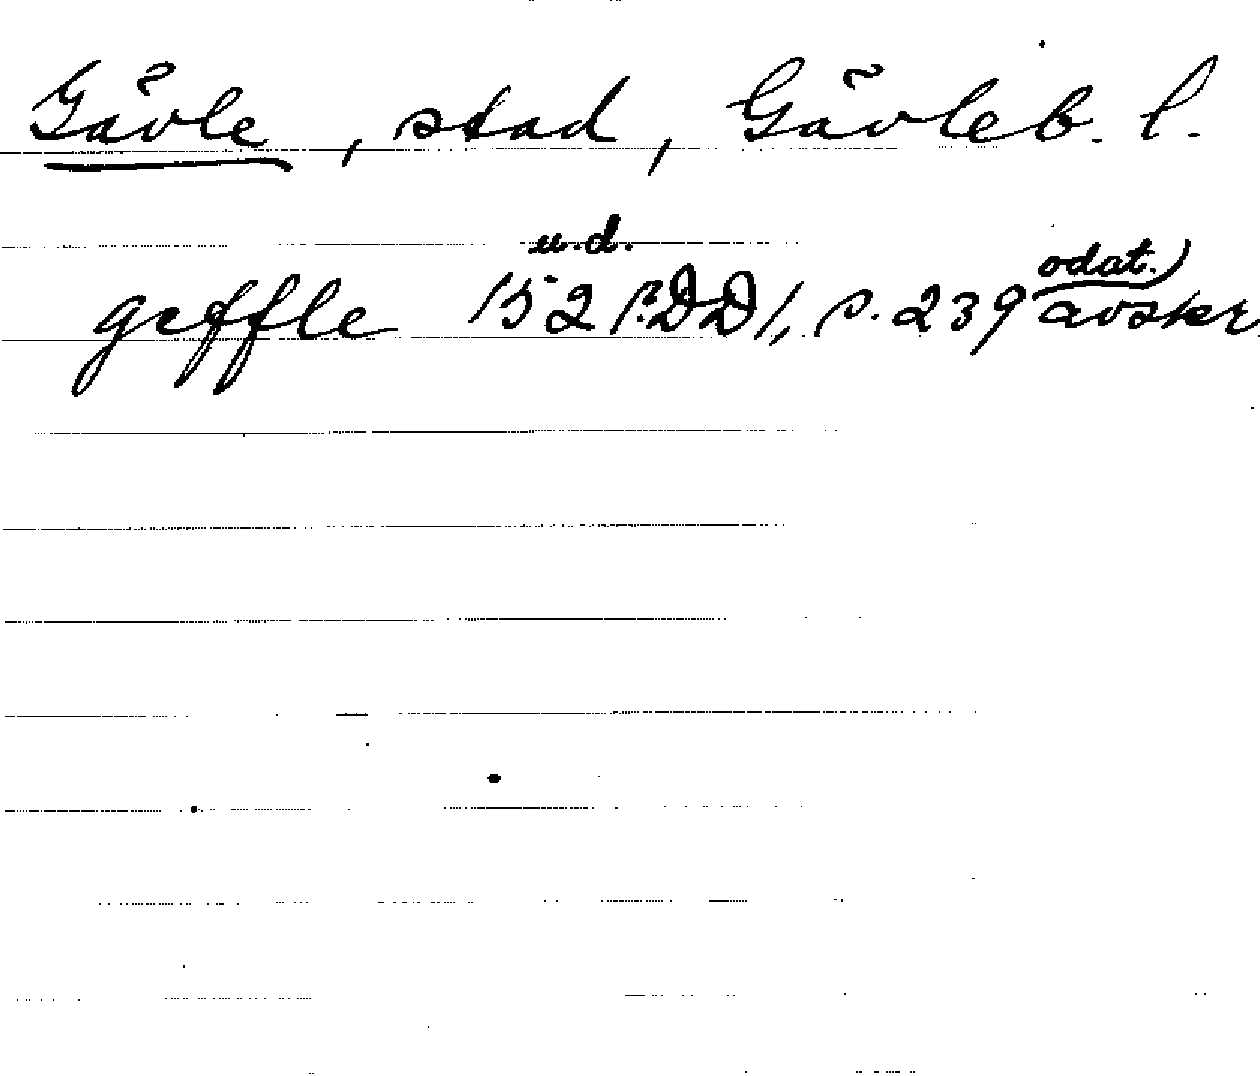 Gävle, stad, Gävleb. l.
u.d. odat.)
geffle 152 ?. DD/, s. 239 avskr